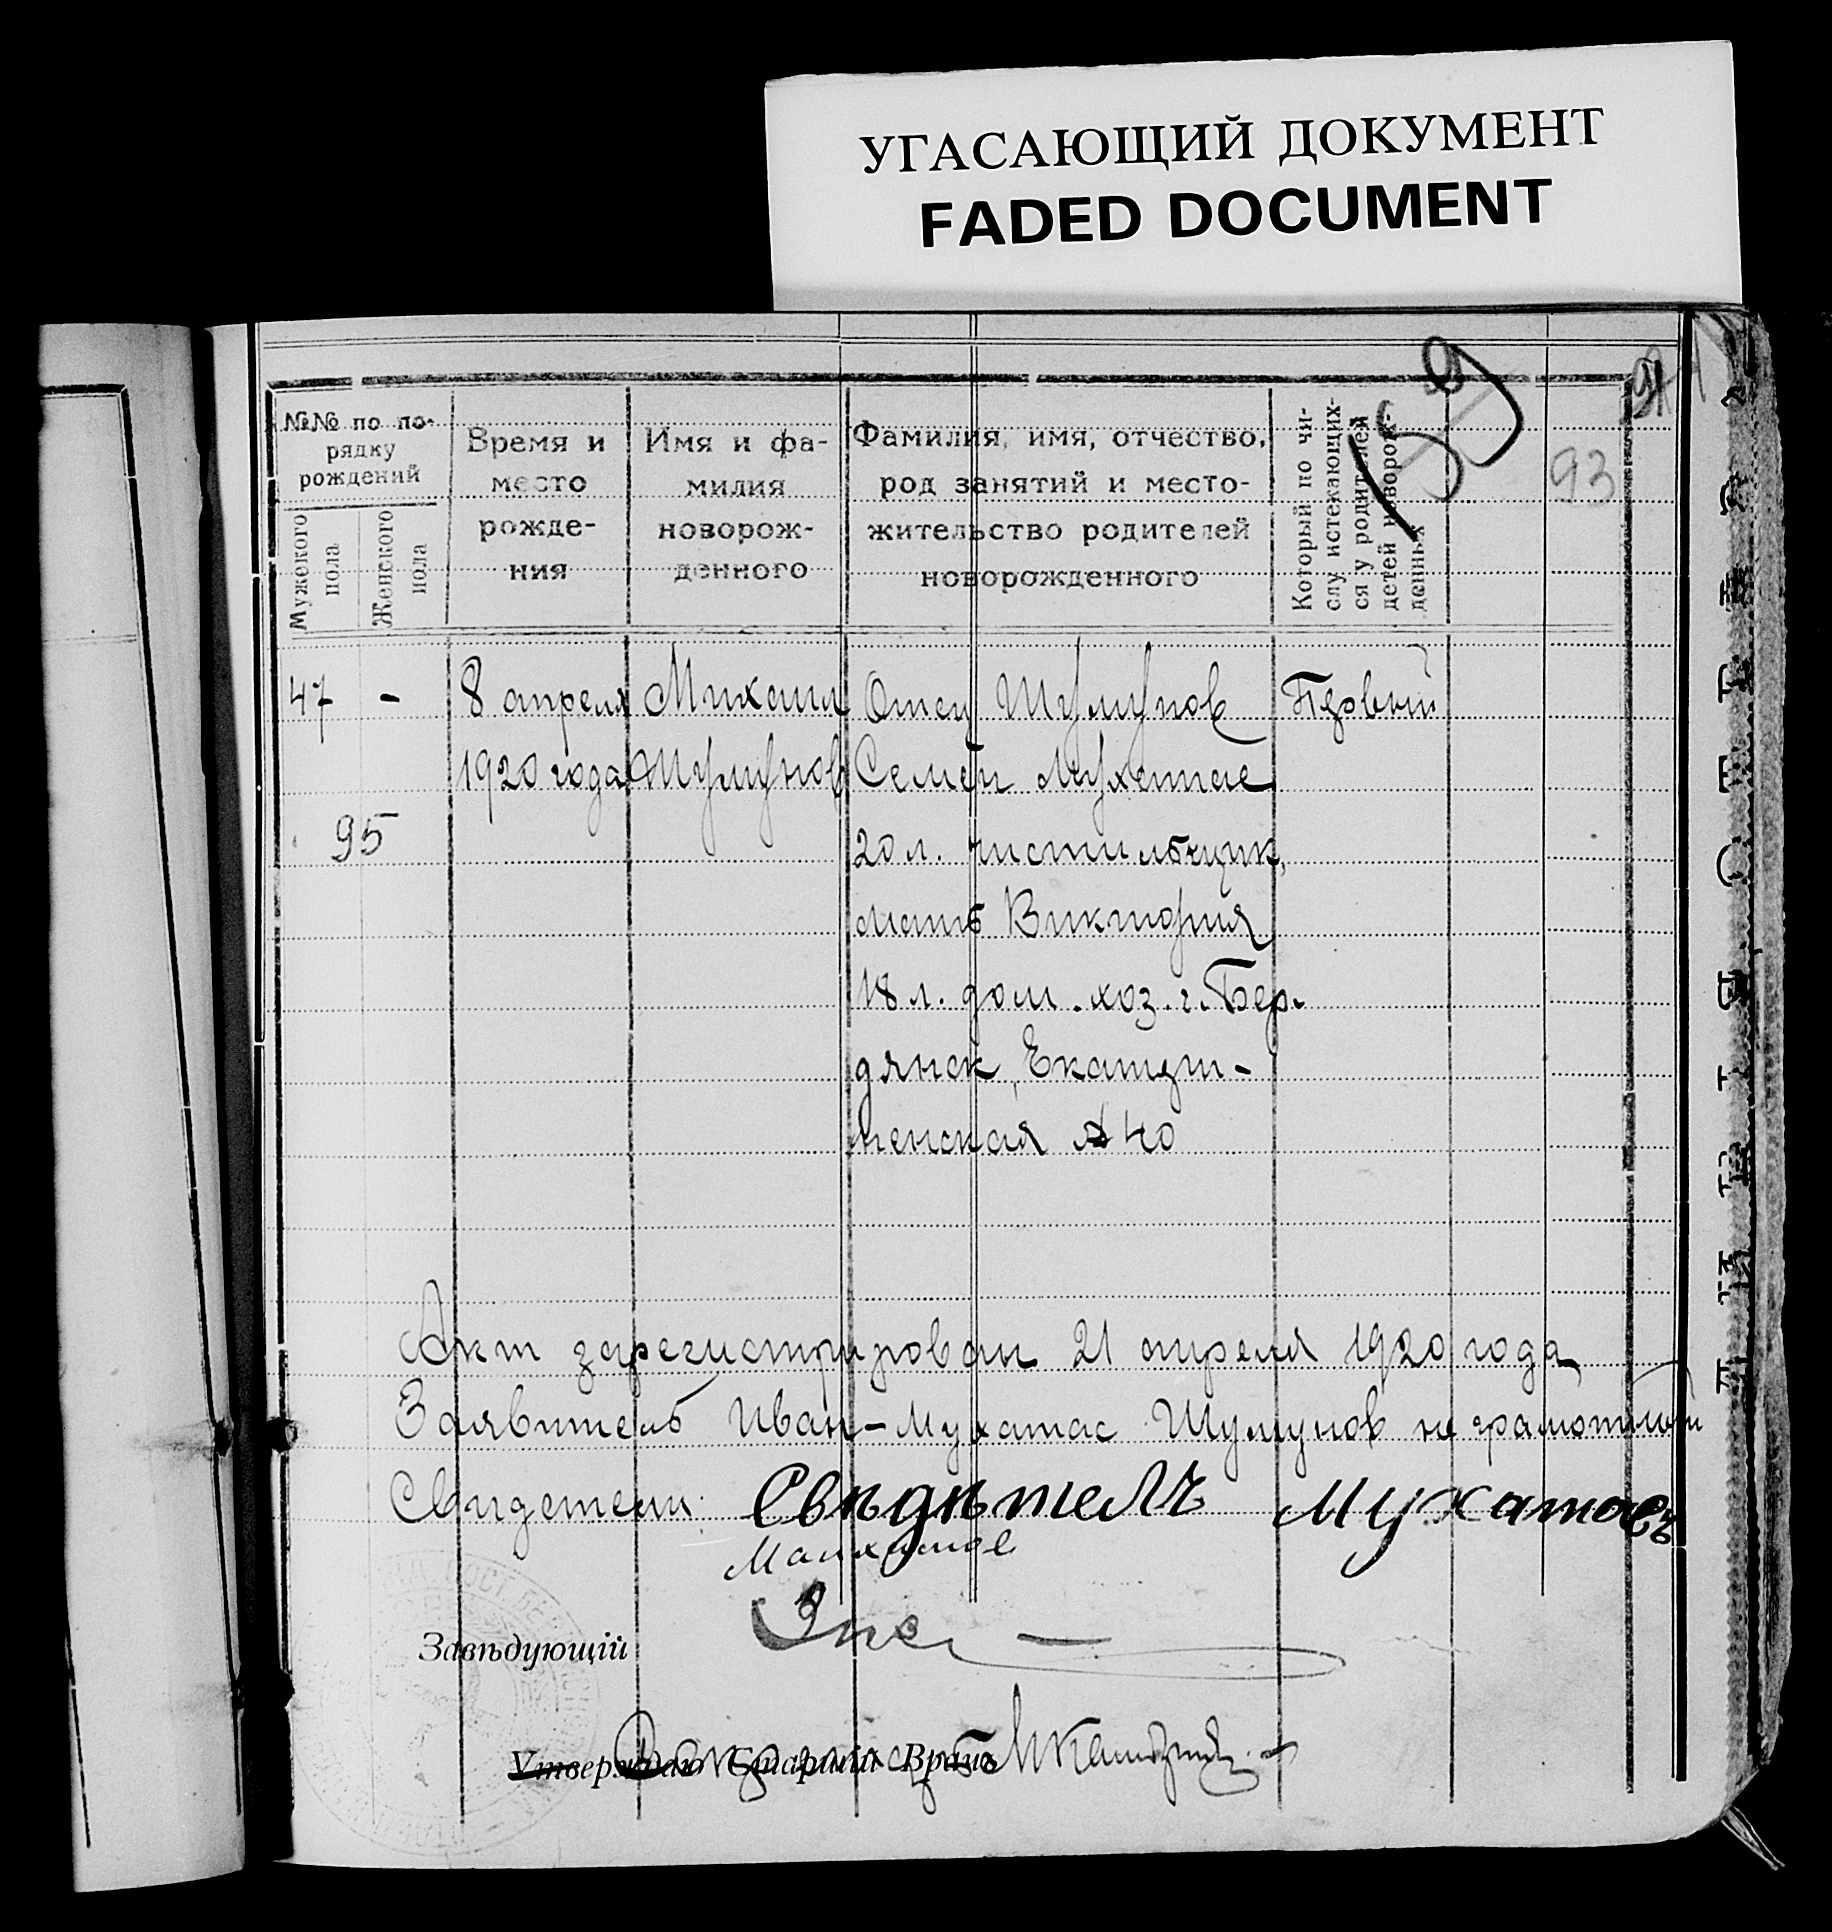 УГАСАЮЩИЙ ДОКУМЕНТ
FADED DOCUMENT
59
93
№№ по по-
рядку
рождений
Мужеского
пола
Женского
пола
Время и
место
рожде-
ния
Имя и фа-
милия
новорож-
денного
Фамилия, имя, отчество,
род занятий и место-
жительство родителей
новорожденного
Который по чи-
слу истекающих-
ся у родителей
детей новорож-
денных
47 -
95
8 апреля
1920 года
Михаил
Шумунов
Отец Шумунов
Семен Мухатас
20 л. чистильщик,
мать Виктория
18 л. дом. хоз. г. Бер-
дянск, Екатери-
ненская № 40
Первый
Акт зарегистрирован 21 апреля 1920 года
Заявитель Иван-Мухатас Шумунов не грамотный
Свидетели: Свѣдѣтелъ Мухатасъ
Завѣдующій
Утверждаю Старшій Врачъ